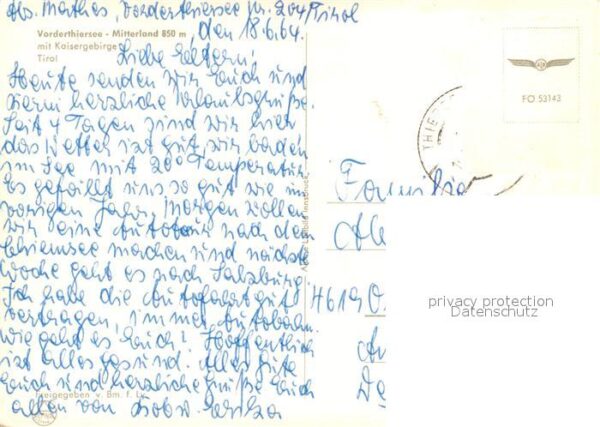 Abs. Matthes, Vorderthiersee Nr. 204/Tirol
Vorderthiersee - Mitterland 850 m
mit Kaisergebirge
Tirol
, den 18.6.64.
Liebe Eltern!
Heute senden wir Euch und
herzliche Urlaubsgrüße.
Seit 4 Tagen sind wir hier
das Wetter ist gut, wir baden
im See mit 20° Temperatur
Es gefällt uns so gut wie im
vorigen Jahr. Morgen wollen
wir eine Autotour nach dem
Chiemsee machen und nächste
Woche geht es nach Salzburg.
Ich habe die Autofahrt gut
vertragen, immer Autobahn.
Wie geht es Euch? Hoffentlich
ist alles gesund. Alles Gute
Euch und herzliche Grüße Euch
allen von Erika
Freigegeben v. Bm. f. Lv.
FO 53143
THIE
Familie
4619
privacy protection
Datenschutz